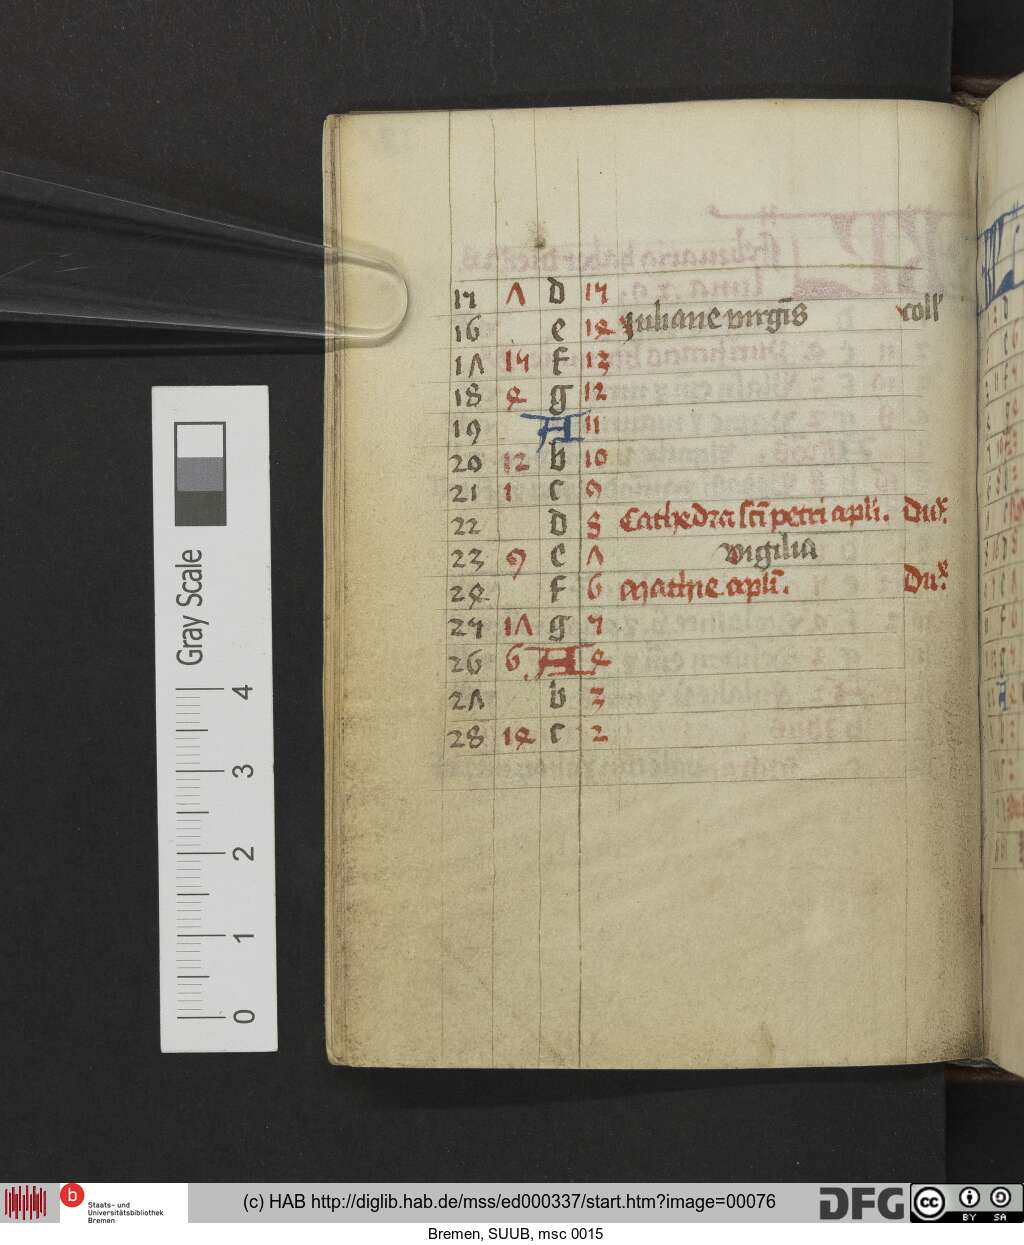 15 7 d 15
16 e 14 Juliane virgīs coll'
17 15 f 13
18 4 g 12
19 A 11
20 12 b 10
21 1 c 9
22 d 8 Cathedra sc̄i petri apli. Du
23 9 e 7 vigilia
24 f 6 Mathie apl̄i. Du
25 17 g 5
26 6 A 4
27 b 3
28 14 c 2
Gray Scale
4
3
2
1
0
b Staats- und
Universitätsbibliothek
Bremen
(c) HAB http://diglib.hab.de/mss/ed000337/start.htm?image=00076
DFG
cc BY SA
Bremen, SUUB, msc 0015